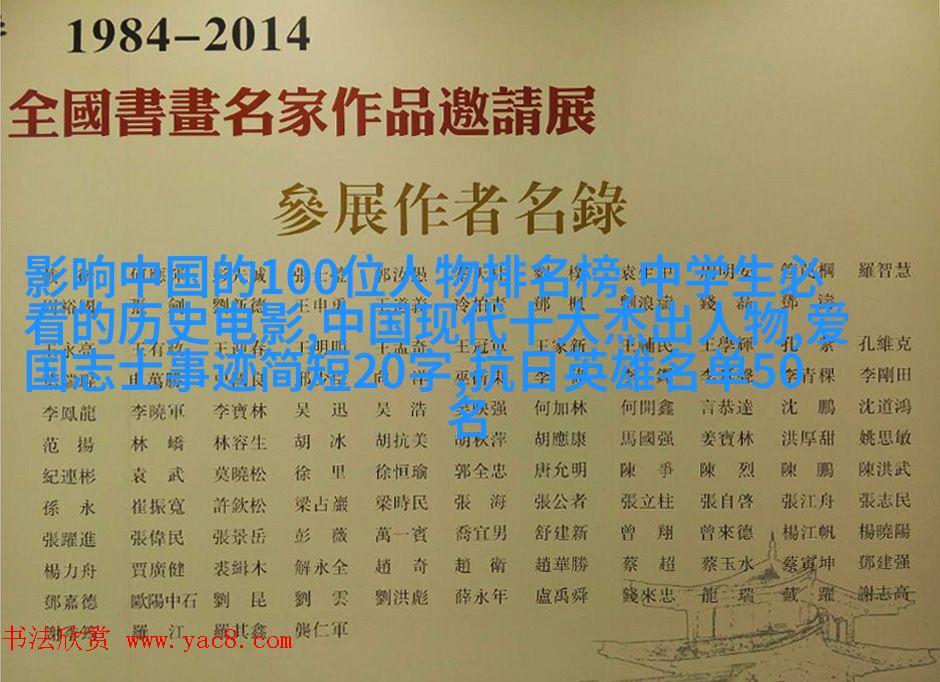 1984-2014
全國書畫名家作品邀請展
參展作者名錄
羅智慧
影响中国的100位人物排名榜,中学生必
劉新德 王申勇 王道義 冷柏青
看的历史电影,中国现代十大杰出人物,爱
王永亮 王有政 王迎春 王明明 王孟奇 王家新 王輔民 王學輝 孔維克
国志士事迹简短20字,抗日英雄名单50
李青稞 李剛田
名
李鳳龍 李曉軍 李寶林 吳迅 吳浩 吳映强 何加林 何開鑫 言恭達 沈鵬 沈道鴻
范揚 林嶠 林容生 胡冰 胡抗美 胡秋萍 胡應康 馬國强 姜寶林 洪厚甜 姚思敏
紀連彬 袁武 莫曉松 徐里 徐恒瑜 郭全忠 唐允明 陳爭 陳烈 陳鵬 陳洪武
孫永 崔振寬 許欽松 梁占巖 梁時民 張海 張公者 張立柱 張自啓 張江舟 張志民
張躍進 張偉民 張景岳 彭薇 萬一賓 喬宜男 舒建新 曾翔 曾來德 楊江帆 楊曉陽
楊力舟 賈廣健 裘緝木 解永全 趙奇 趙衛 趙華勝 蔡超 蔡玉水 蔡寅坤 鄧建强
鄧嘉德 歐陽中石 劉昆 劉雲 劉洪彪 薛永年 盧禹舜 錢來忠 龍瑞 戴躍 謝志高
羅江 羅其鑫 龔仁軍
书法欣赏 www.yac8.com